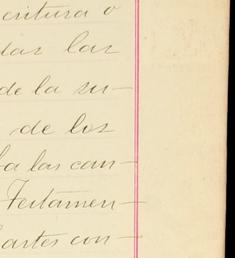 critura o
das las
de la su-
de los
ba las can-
Testamen-
Partes con-